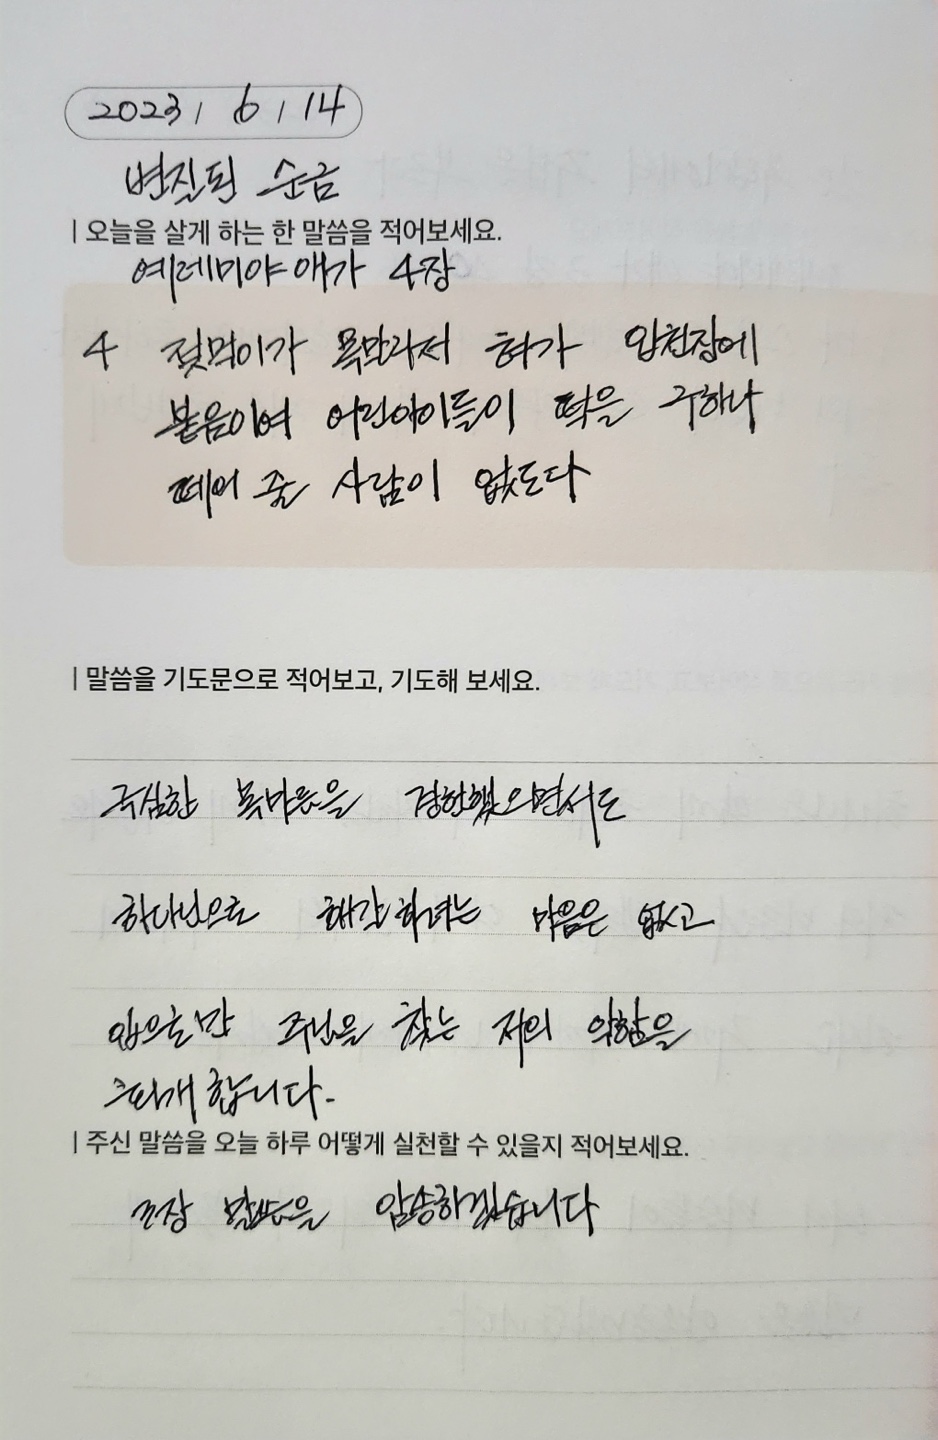 2023 / 6 / 14
변질된 순금
| 오늘을 살게 하는 한 말씀을 적어보세요.
예레미야 애가 4장
4 젖먹이가 목말라서 혀가 입천장에
붙음이여 어린아이들이 떡을 구하나
떼어 줄 사람이 없도다
| 말씀을 기도문으로 적어보고, 기도해 보세요.
극심한 목마름을 경험했으면서도
하나님으로 해갈하려는 마음은 없고
입으로만 주님을 찾는 저의 악함을
회개합니다.
| 주신 말씀을 오늘 하루 어떻게 실천할 수 있을지 적어보세요.
말씀을 암송하겠습니다